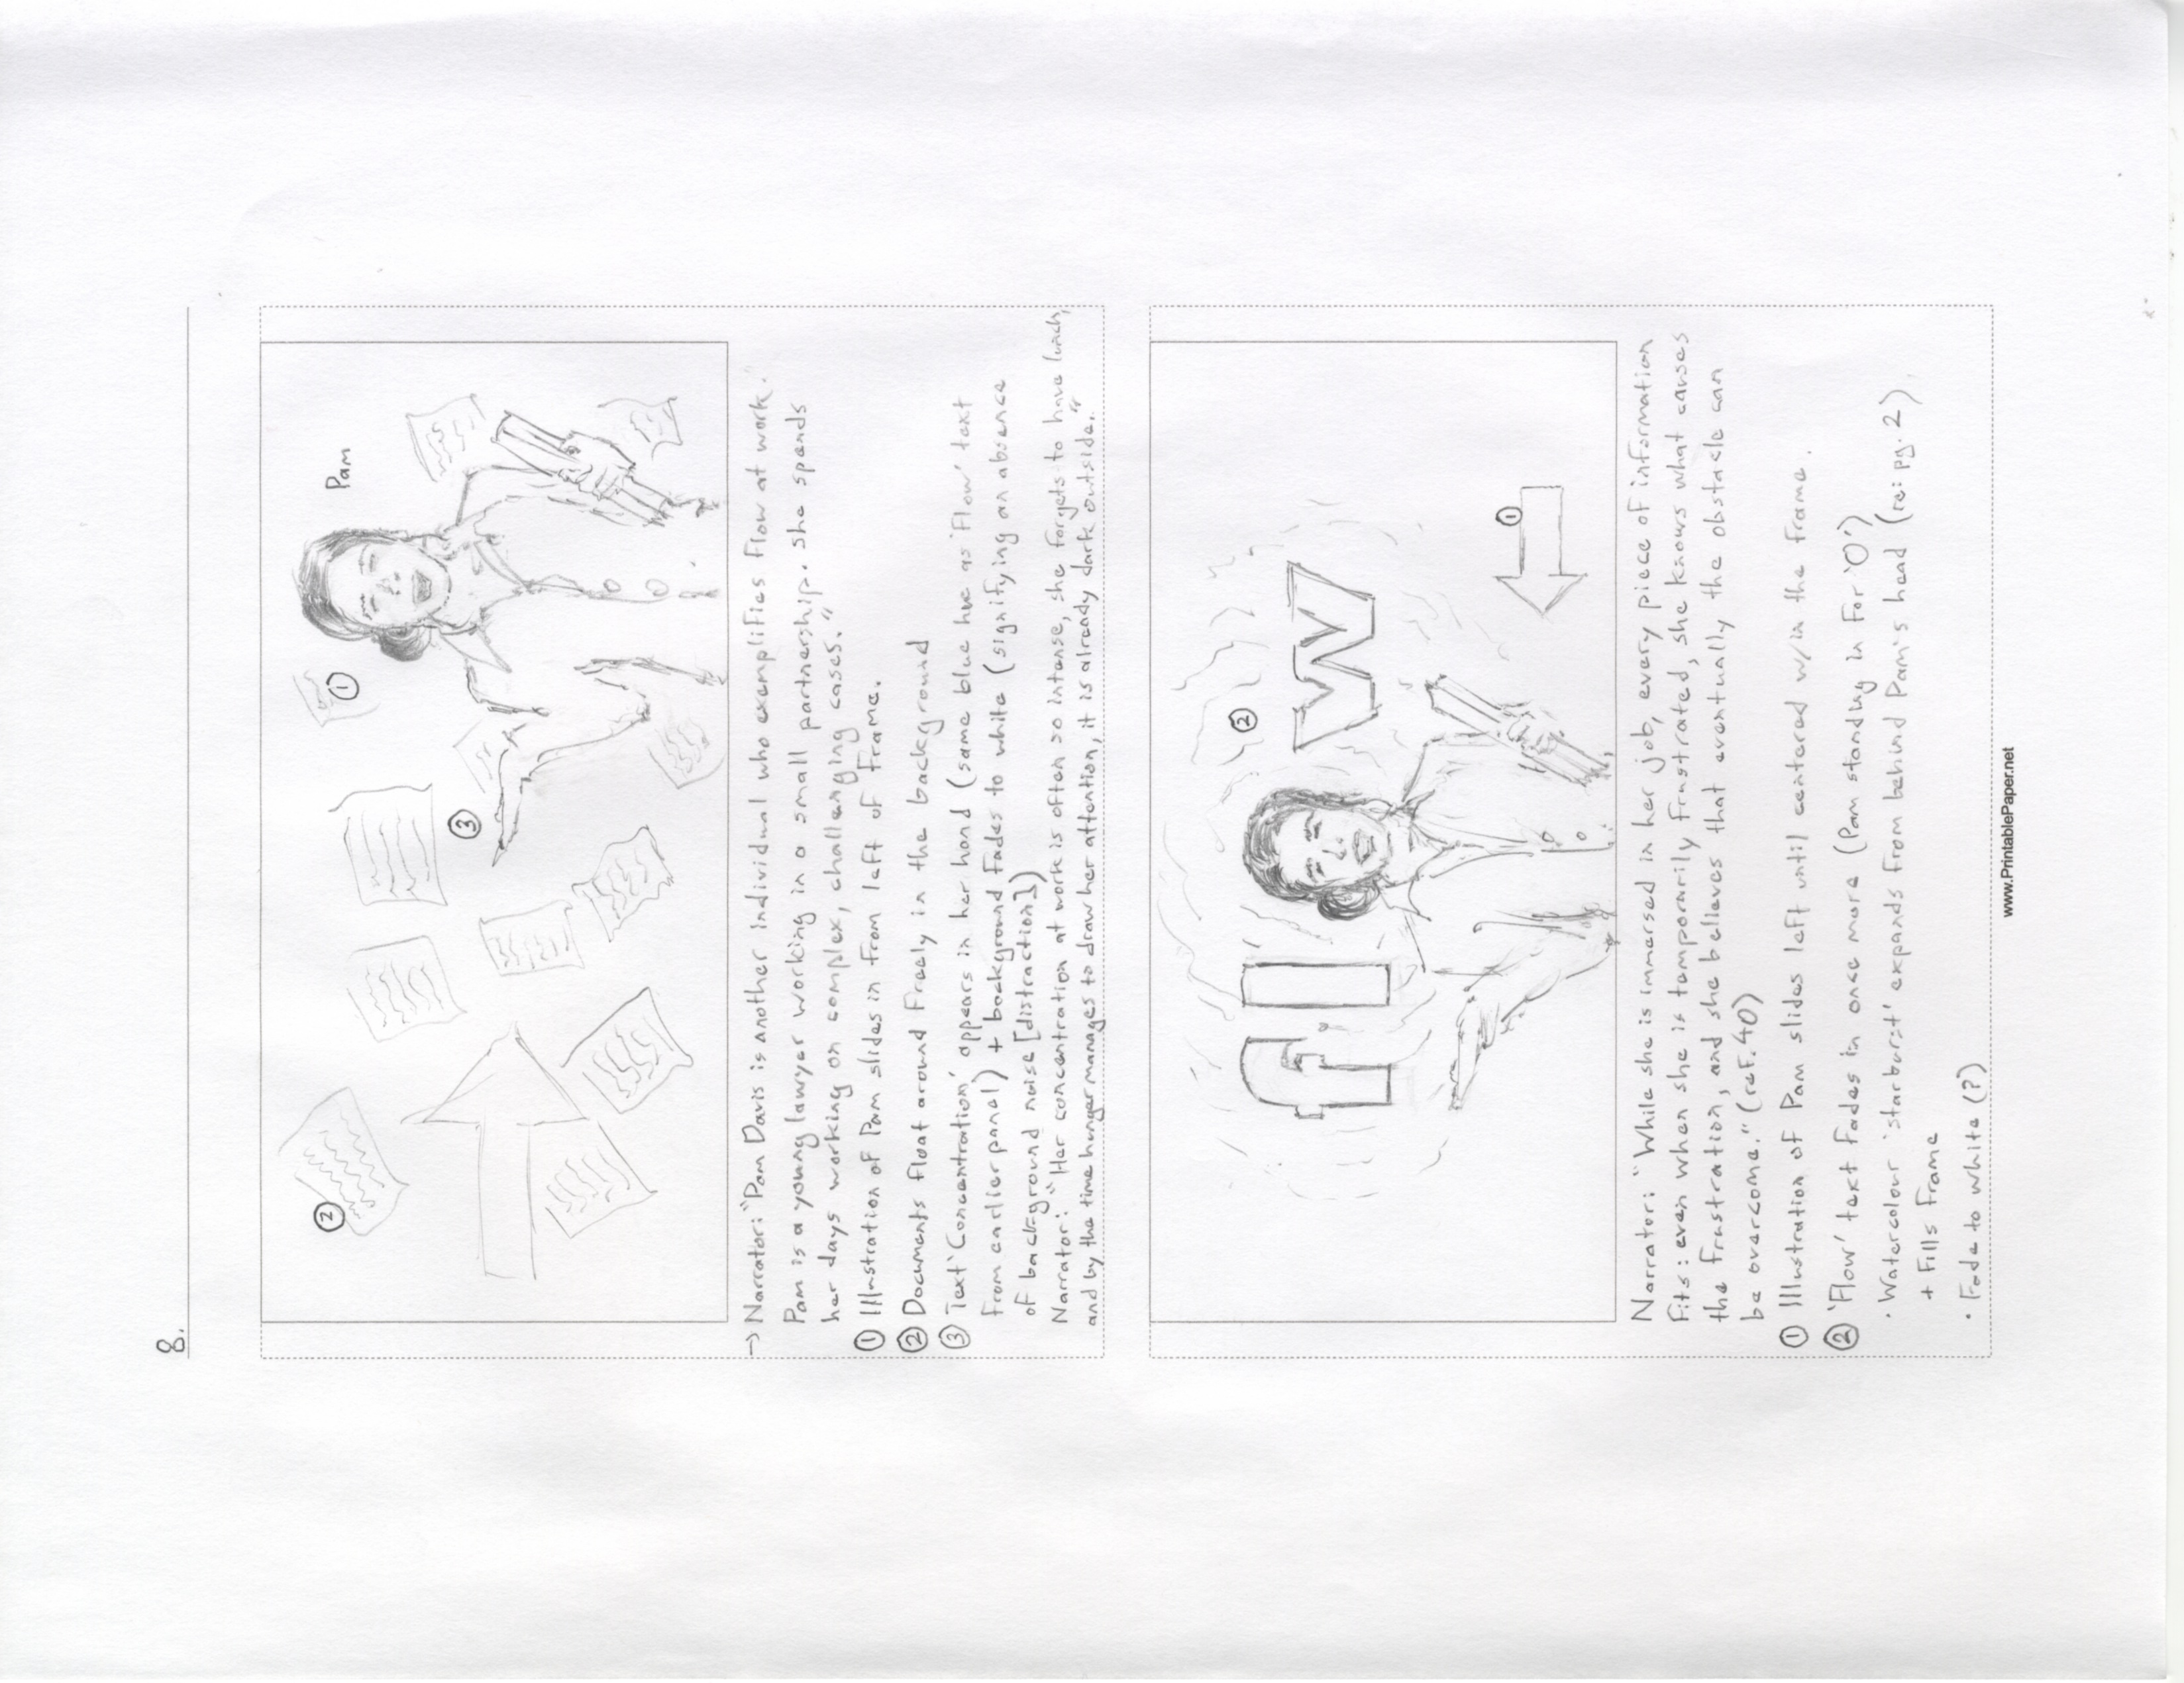 8.
Pam
①
②
③
→ Narrator: "Pam Davis is another individual who exemplifies flow at work.
Pam is a young lawyer working in a small partnership. She spends
her days working on complex, challenging cases."
① Illustration of Pam slides in from left of frame.
② Documents float around freely in the background
③ Text 'Concentration' appears in her hand (same blue hue as 'Flow' text
from earlier panel) + background fades to white (signifying an absence
of background noise [distraction])
Narrator: "Her concentration at work is often so intense, she forgets to have lunch,
and by the time hunger manages to draw her attention, it is already dark outside."
②
fl w
①
Narrator: "While she is immersed in her job, every piece of information
fits: even when she is temporarily frustrated, she knows what causes
the frustration, and she believes that eventually the obstacle can
be overcome." (ref. 40)
① Illustration of Pam slides left until centered w/in the frame.
② 'Flow' text fades in once more (Pam standing in for 'O')
· Watercolour 'starburst' expands from behind Pam's head (re: pg. 2)
+ fills frame
· Fade to white (?)
www.PrintablePaper.net